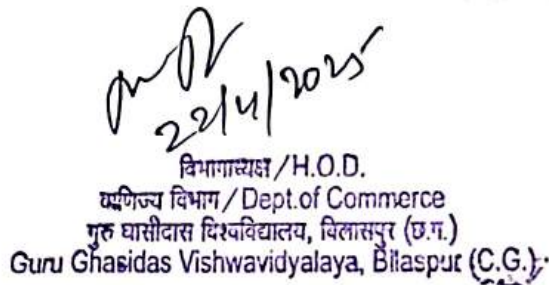 22/4/2025
विभागाध्यक्ष / H.O.D.
वाणिज्य विभाग / Dept. of Commerce
गुरु घासीदास विश्वविद्यालय, बिलासपुर (छ.ग.)
Guru Ghasidas Vishwavidyalaya, Bilaspur (C.G.)